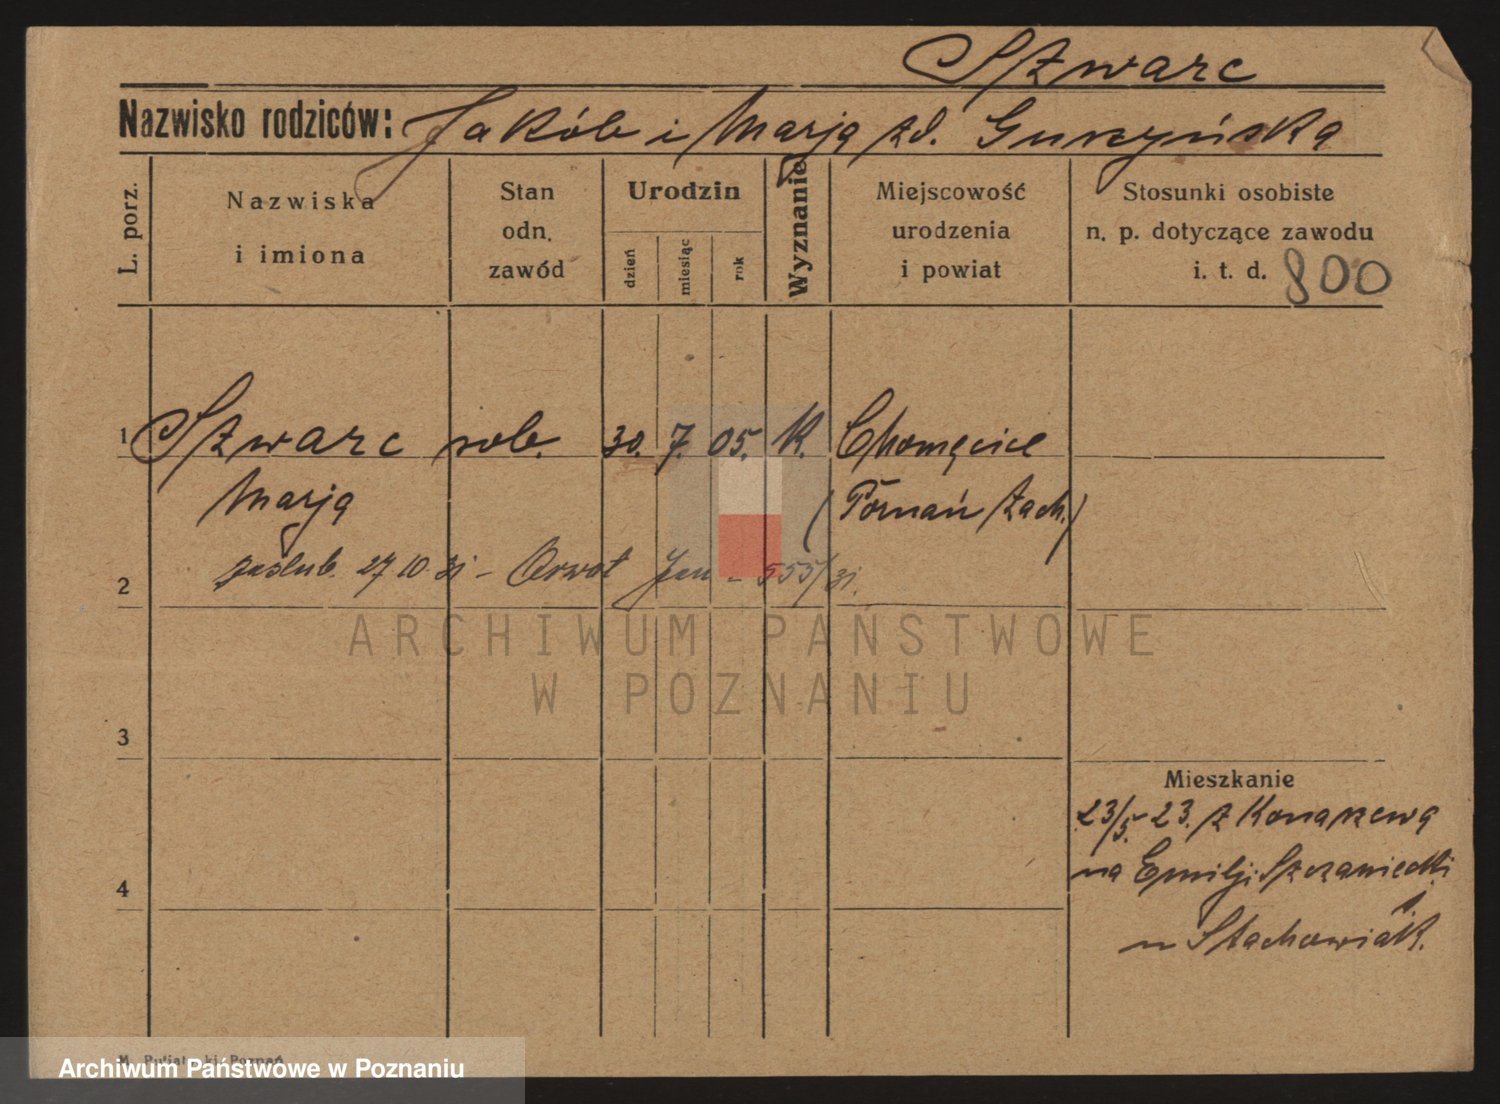 Szwarc
Nazwisko rodziców: Jakób i Marja zd.
L. porz.
Nazwiska
i imiona
Stan
odn.
zawód
Urodzin
dzień
miesiąc
rok
Wyznanie
Miejscowość
urodzenia
i powiat
Stosunki osobiste
n. p. dotyczące zawodu
i. t. d. 800
1 Szwarc rob. 30. 7. 05. K. Chomęcice
Marja (Poznań Zach.)
zaślub. 27 10 31 - Orwat Jan - 555/31.
2
ARCHIWUM PAŃSTWOWE
W POZNANIU
3
Mieszkanie
23/5. 23. z Konarzewa
na Emilji Szczanieckij
4
u Stachowiak.
Poznań
Archiwum Państwowe w Poznaniu